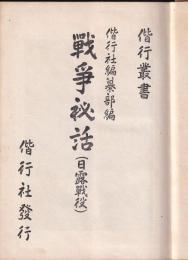 偕行叢書
偕行社編纂部編
戰爭秘話(日露戰役)
偕行社發行